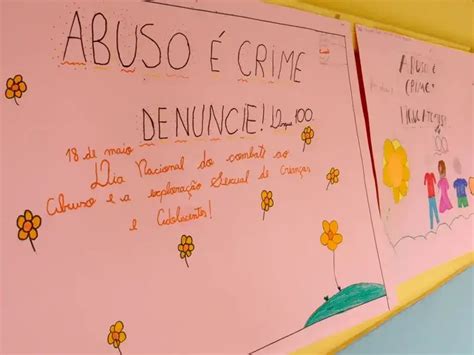 ABUSO É CRIME
DENUNCIE! Disque 100.
18 de maio
Dia Nacional do combate ao
Abuso e a exploração Sexual de Crianças
e Adolescentes!
ABUSO É
CRIME
100